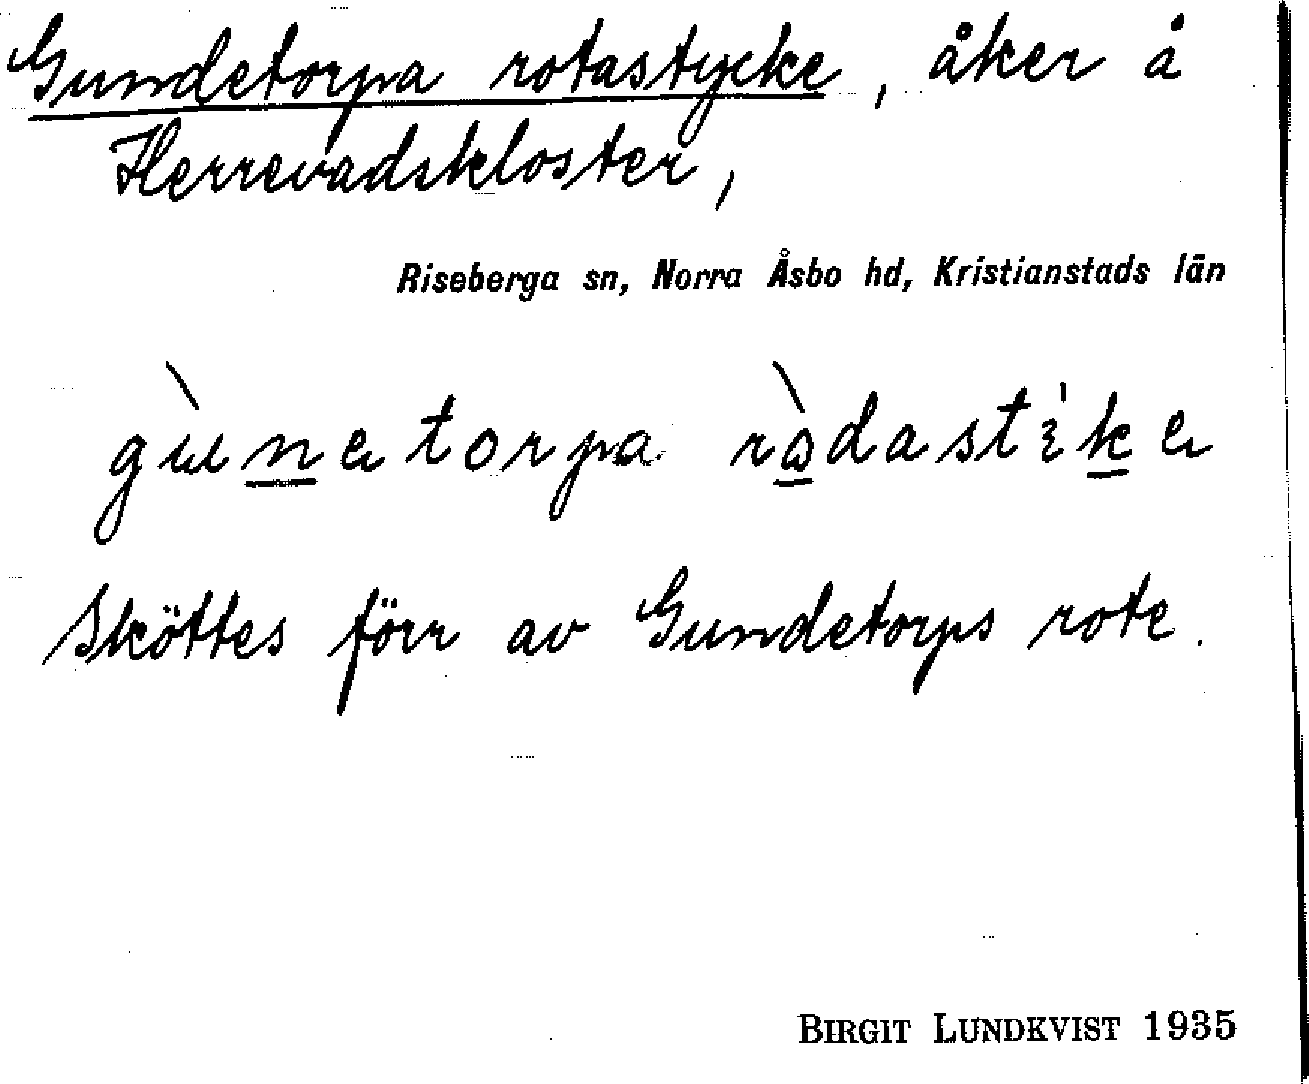 Gundetorpa rotastycke, åker å
Herrevadskloster,
Riseberga sn, Norra Åsbo hd, Kristianstads län
gùnetorpa ròdastike
Sköttes förr av Gundetorps rote.
BIRGIT LUNDKVIST 1935